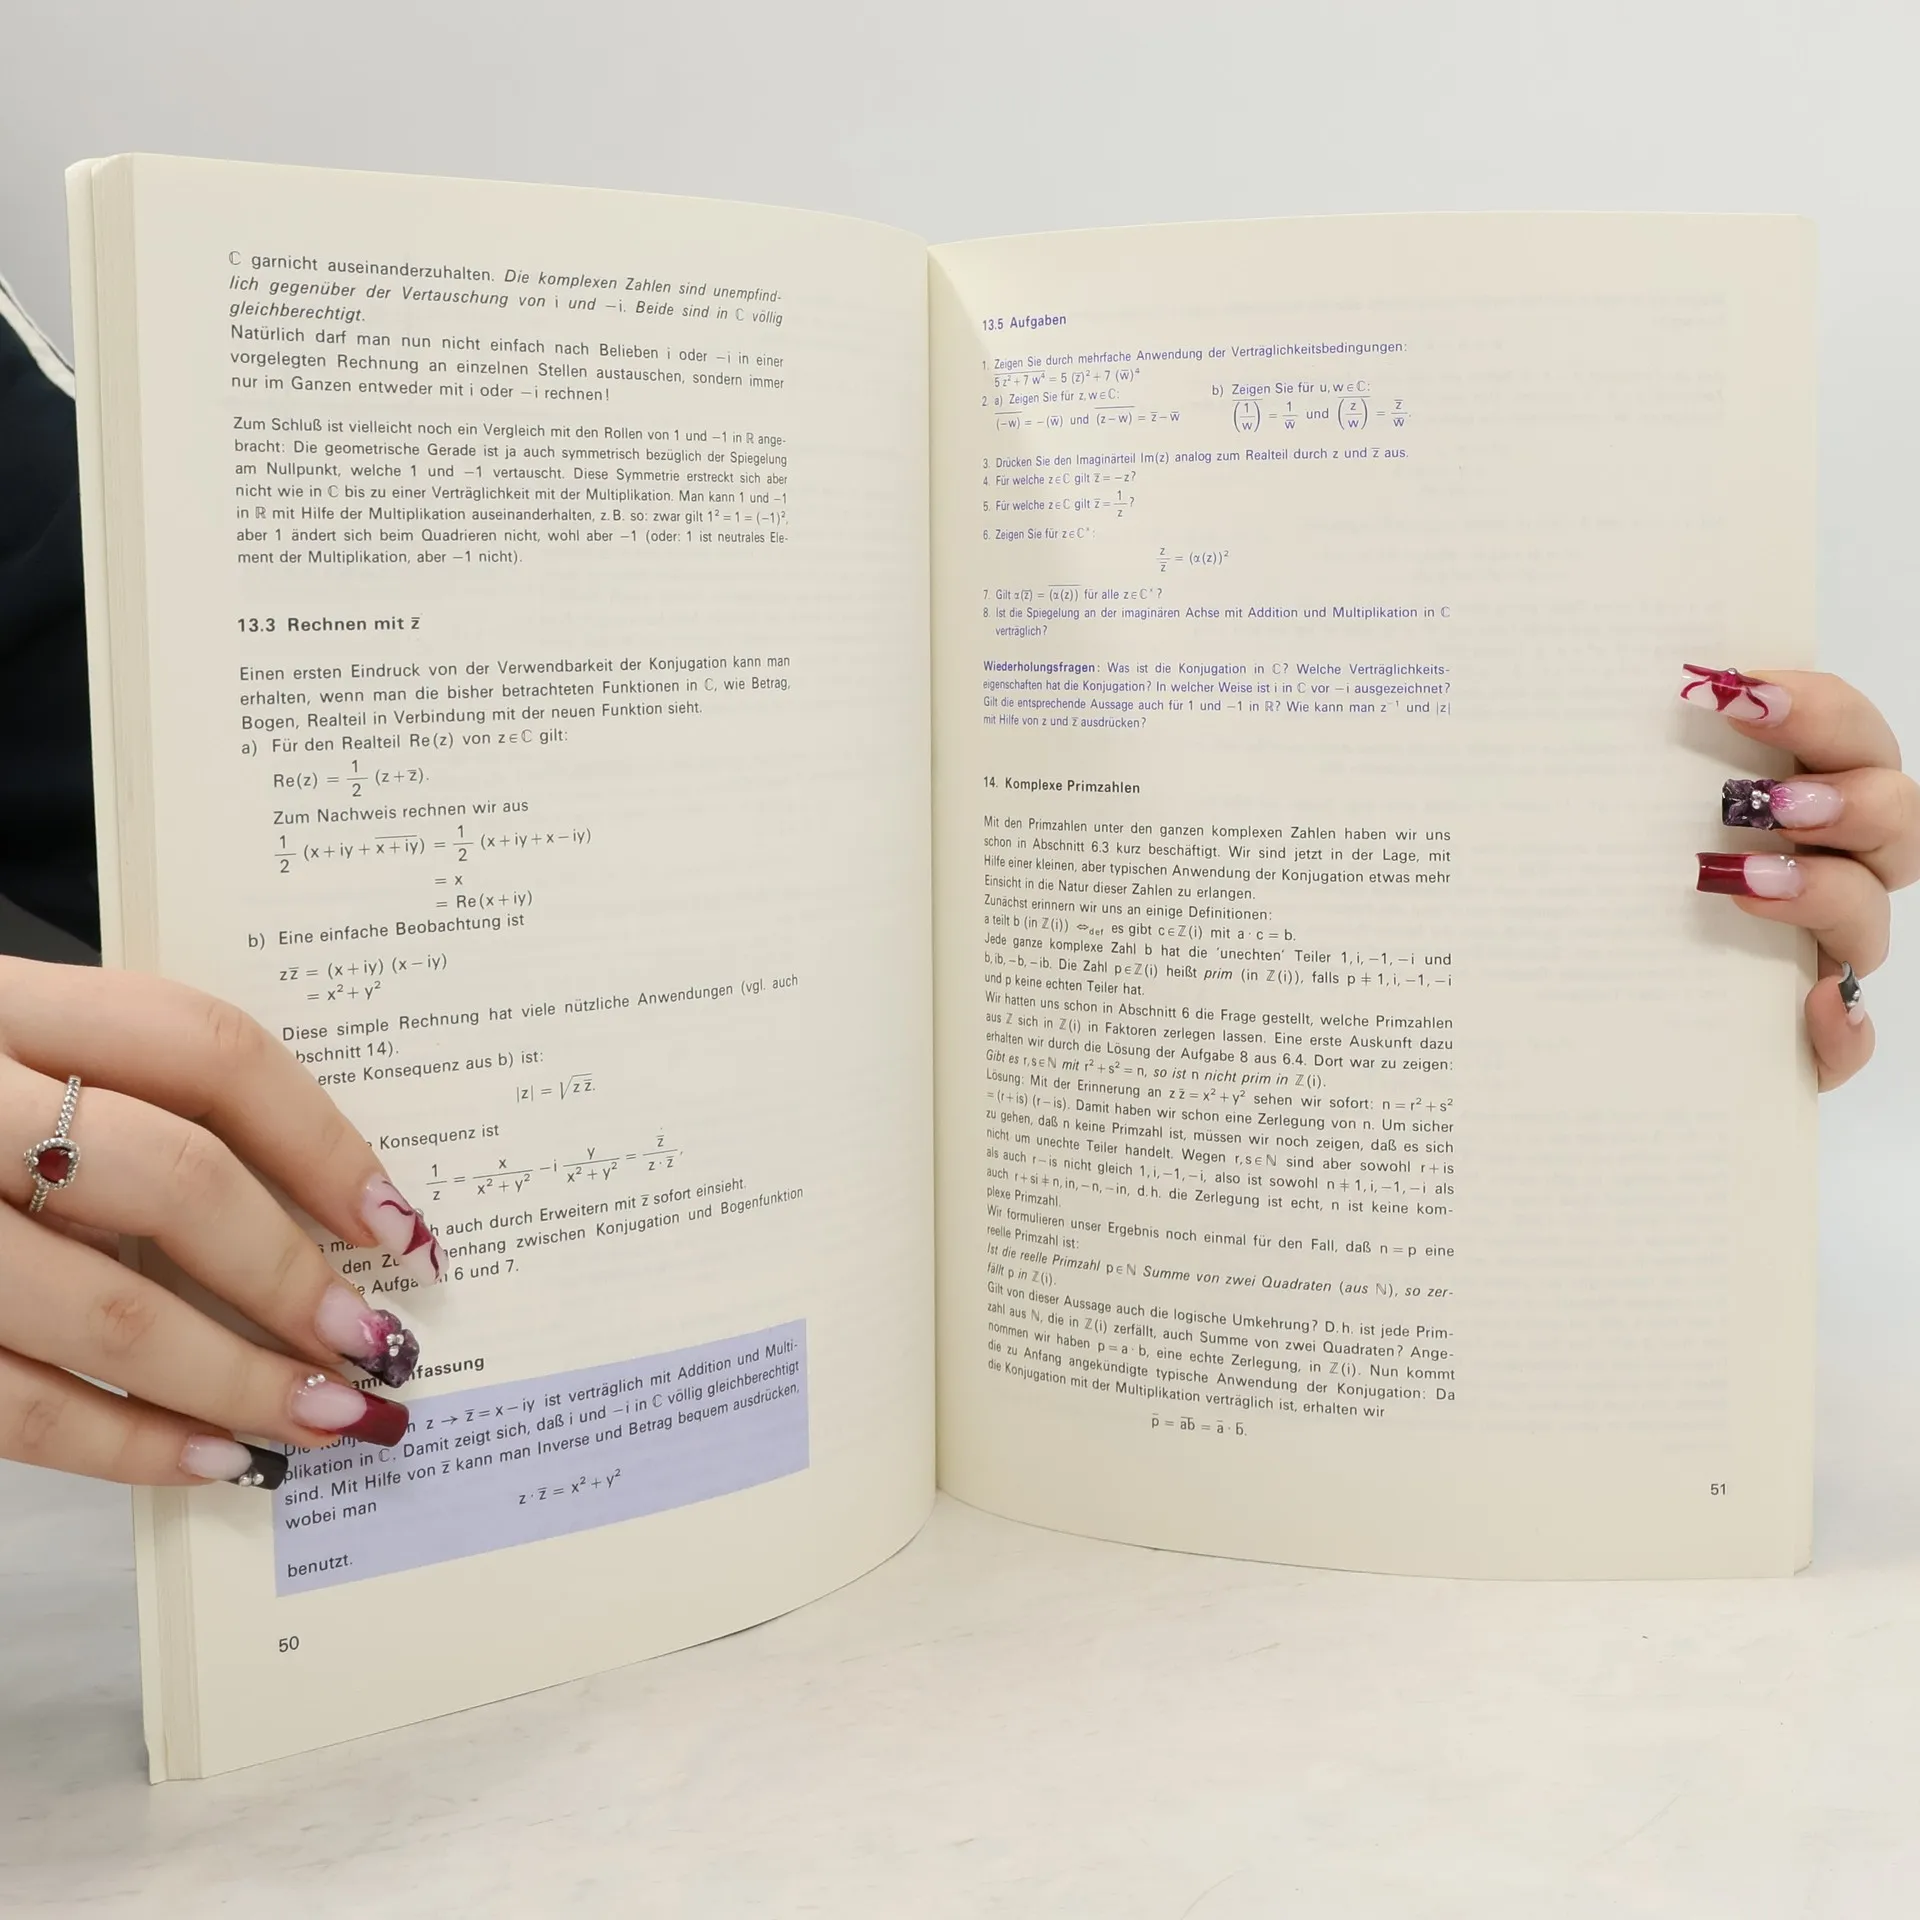 ℂ garnicht auseinanderzuhalten. Die komplexen Zahlen sind unempfind-
lich gegenüber der Vertauschung von i und −i. Beide sind in ℂ völlig
gleichberechtigt.
Natürlich darf man nun nicht einfach nach Belieben i oder −i in einer
vorgelegten Rechnung an einzelnen Stellen austauschen, sondern immer
nur im Ganzen entweder mit i oder −i rechnen!
Zum Schluß ist vielleicht noch ein Vergleich mit den Rollen von 1 und −1 in ℝ ange-
bracht: Die geometrische Gerade ist ja auch symmetrisch bezüglich der Spiegelung
am Nullpunkt, welche 1 und −1 vertauscht. Diese Symmetrie erstreckt sich aber
nicht wie in ℂ bis zu einer Verträglichkeit mit der Multiplikation. Man kann 1 und −1
in ℝ mit Hilfe der Multiplikation auseinanderhalten, z.B. so: zwar gilt 1² = 1 = (−1)²,
aber 1 ändert sich beim Quadrieren nicht, wohl aber −1 (oder: 1 ist neutrales Ele-
ment der Multiplikation, aber −1 nicht).
13.3 Rechnen mit z̅
Einen ersten Eindruck von der Verwendbarkeit der Konjugation kann man
erhalten, wenn man die bisher betrachteten Funktionen in ℂ, wie Betrag,
Bogen, Realteil in Verbindung mit der neuen Funktion sieht.
a) Für den Realteil Re(z) von z∈ℂ gilt:
Re(z) = 1/2 (z+z̅).
Zum Nachweis rechnen wir aus
1/2 (x+iy+\overline{x+iy}) = 1/2 (x+iy+x−iy)
= x
= Re(x+iy)
b) Eine einfache Beobachtung ist
zz̅ = (x+iy) (x−iy)
= x²+y²
Diese simple Rechnung hat viele nützliche Anwendungen (vgl. auch
bschnitt 14).
erste Konsequenz aus b) ist:
|z| = √(z z̅).
Konsequenz ist
1/z = x/(x²+y²) −i y/(x²+y²) = z̅/(z·z̅),
auch durch Erweitern mit z̅ sofort einsieht.
den menhang zwischen Konjugation und Bogenfunktion
6 und 7.
fassung
z → z̅ = x−iy ist verträglich mit Addition und Multi-
plikation in ℂ. Damit zeigt sich, daß i und −i in ℂ völlig gleichberechtigt
sind. Mit Hilfe von z̅ kann man Inverse und Betrag bequem ausdrücken,
wobei man
z·z̅ = x²+y²
benutzt.
50
13.5 Aufgaben
1. Zeigen Sie durch mehrfache Anwendung der Verträglichkeitsbedingungen:
\overline{5z²+7w⁴} = 5 (z̅)²+7 (w̅)⁴
2. a) Zeigen Sie für z, w∈ℂ:
\overline{(−w)} = −(w̅) und \overline{(z−w)} = z̅−w̅
b) Zeigen Sie für u, w∈ℂ:
\overline{(1/w)} = 1/w̅ und \overline{(z/w)} = z̅/w̅.
3. Drücken Sie den Imaginärteil Im(z) analog zum Realteil durch z und z̅ aus.
4. Für welche z∈ℂ gilt z̅ = −z?
5. Für welche z∈ℂ gilt z̅ = 1/z?
6. Zeigen Sie für z∈ℂˣ:
z/z̅ = (α(z))²
7. Gilt α(z̅) = \overline{(α(z))} für alle z∈ℂˣ?
8. Ist die Spiegelung an der imaginären Achse mit Addition und Multiplikation in ℂ
verträglich?
Wiederholungsfragen: Was ist die Konjugation in ℂ? Welche Verträglichkeits-
eigenschaften hat die Konjugation? In welcher Weise ist i in ℂ vor −i ausgezeichnet?
Gilt die entsprechende Aussage auch für 1 und −1 in ℝ? Wie kann man z⁻¹ und |z|
mit Hilfe von z und z̅ ausdrücken?
14. Komplexe Primzahlen
Mit den Primzahlen unter den ganzen komplexen Zahlen haben wir uns
schon in Abschnitt 6.3 kurz beschäftigt. Wir sind jetzt in der Lage, mit
Hilfe einer kleinen, aber typischen Anwendung der Konjugation etwas mehr
Einsicht in die Natur dieser Zahlen zu erlangen.
Zunächst erinnern wir uns an einige Definitionen:
a teilt b (in ℤ(i)) ⇔def es gibt c∈ℤ(i) mit a·c = b.
Jede ganze komplexe Zahl b hat die 'unechten' Teiler 1, i, −1, −i und
b, ib, −b, −ib. Die Zahl p∈ℤ(i) heißt prim (in ℤ(i)), falls p ≠ 1, i, −1, −i
und p keine echten Teiler hat.
Wir hatten uns schon in Abschnitt 6 die Frage gestellt, welche Primzahlen
aus ℤ sich in ℤ(i) in Faktoren zerlegen lassen. Eine erste Auskunft dazu
erhalten wir durch die Lösung der Aufgabe 8 aus 6.4. Dort war zu zeigen:
Gibt es r,s∈ℕ mit r²+s² = n, so ist n nicht prim in ℤ(i).
Lösung: Mit der Erinnerung an z z̅ = x²+y² sehen wir sofort: n = r²+s²
= (r+is) (r−is). Damit haben wir schon eine Zerlegung von n. Um sicher
zu gehen, daß n keine Primzahl ist, müssen wir noch zeigen, daß es sich
nicht um unechte Teiler handelt. Wegen r,s∈ℕ sind aber sowohl r+is
als auch r−is nicht gleich 1, i, −1, −i, also ist sowohl n ≠ 1, i, −1, −i als
auch r+si ≠ n, in, −n, −in, d.h. die Zerlegung ist echt, n ist keine kom-
plexe Primzahl.
Wir formulieren unser Ergebnis noch einmal für den Fall, daß n = p eine
reelle Primzahl ist:
Ist die reelle Primzahl p∈ℕ Summe von zwei Quadraten (aus ℕ), so zer-
fällt p in ℤ(i).
Gilt von dieser Aussage auch die logische Umkehrung? D.h. ist jede Prim-
zahl aus ℕ, die in ℤ(i) zerfällt, auch Summe von zwei Quadraten? Ange-
nommen wir haben p = a·b, eine echte Zerlegung, in ℤ(i). Nun kommt
die zu Anfang angekündigte typische Anwendung der Konjugation: Da
die Konjugation mit der Multiplikation verträglich ist, erhalten wir
p̅ = \overline{ab} = a̅·b̅.
51